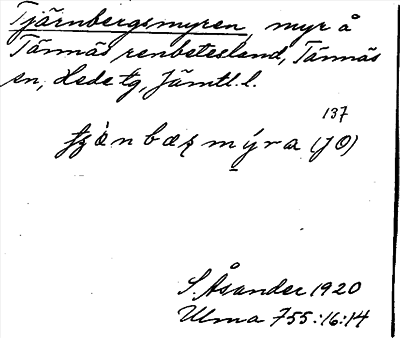 Tjärnbergsmyren, myr å
Tännäs renbetesland, Tännäs
sn, Hede tg, Jämtl. l.
137
myra (JO)
S. Åsander 1920
Ulma 755:16:14